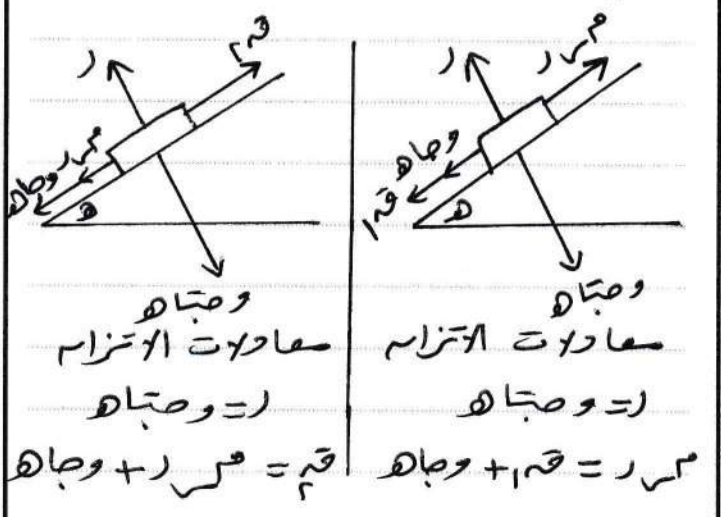 م س ر
ر
و حا هـ
ق١
هـ
و حتا هـ
معادلات الاتزان
ر = و حتا هـ
م س ر = ق١ + و حا هـ
ق٢
ر
م س ر
و حا هـ
هـ
و حتا هـ
معادلات الاتزان
ر = و حتا هـ
ق٢ = م س ر + و حا هـ